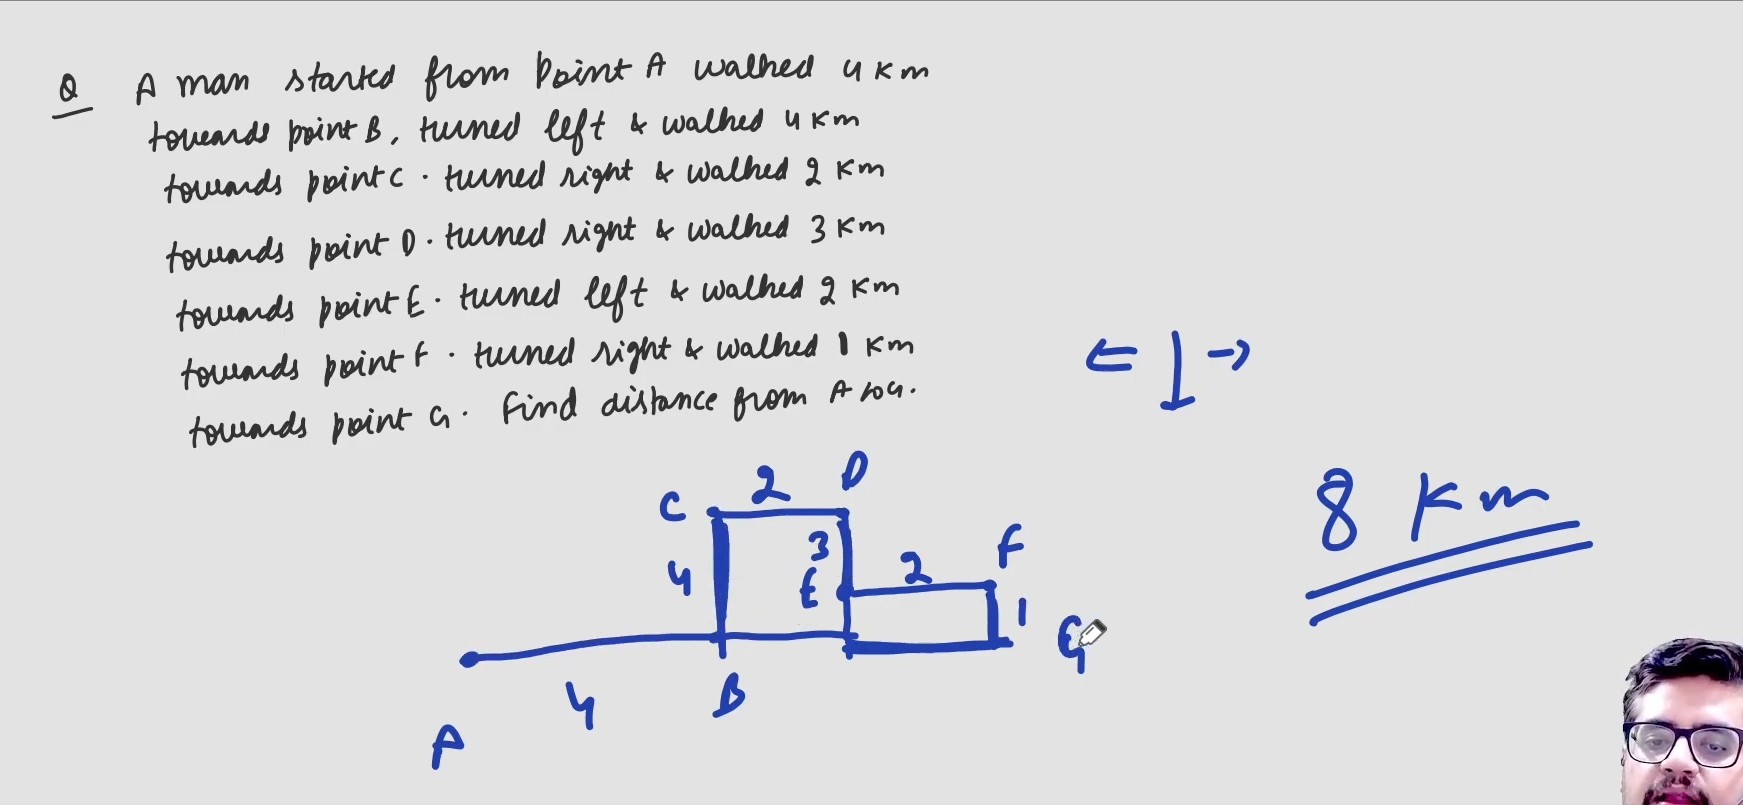 Q A man started from point A walked 4 km
towards point B, turned left & walked 4 km
towards point C. turned right & walked 2 km
towards point D. turned right & walked 3 km
towards point E. turned left & walked 2 km
towards point F. turned right & walked 1 km
towards point G. Find distance from A to G.
← | →
8 Km
C 2 D
4 3 E 2 F
1 G
A 4 B